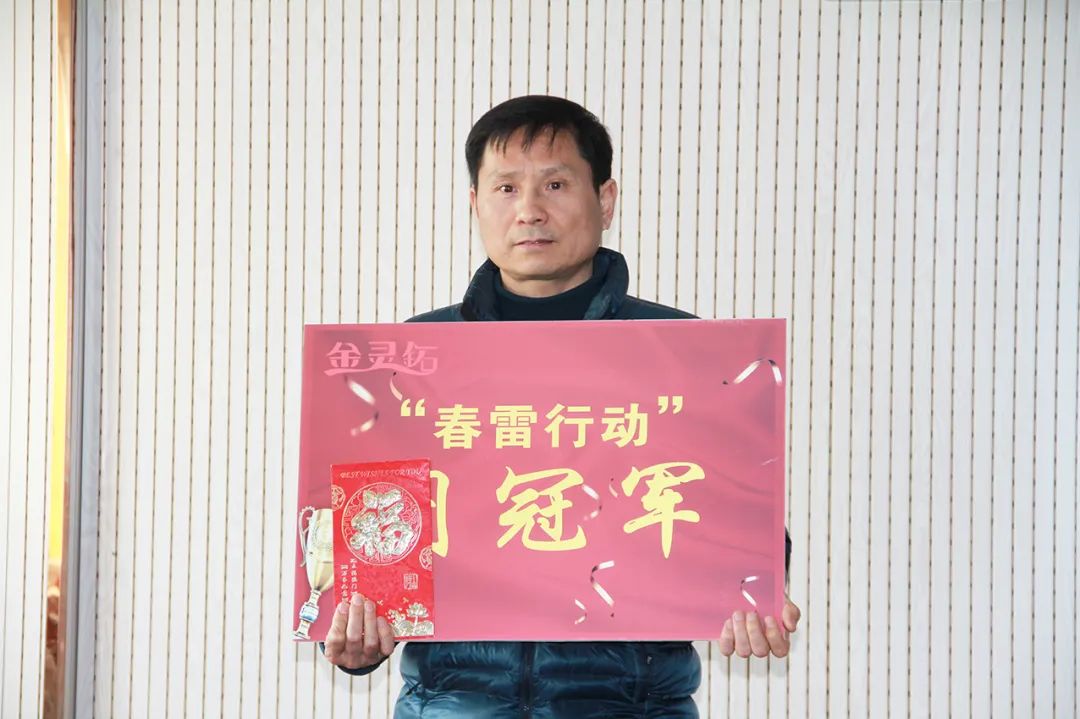 金灵鈪
“春雷行动”
冠军
BEST WISHES FOR YOU
福